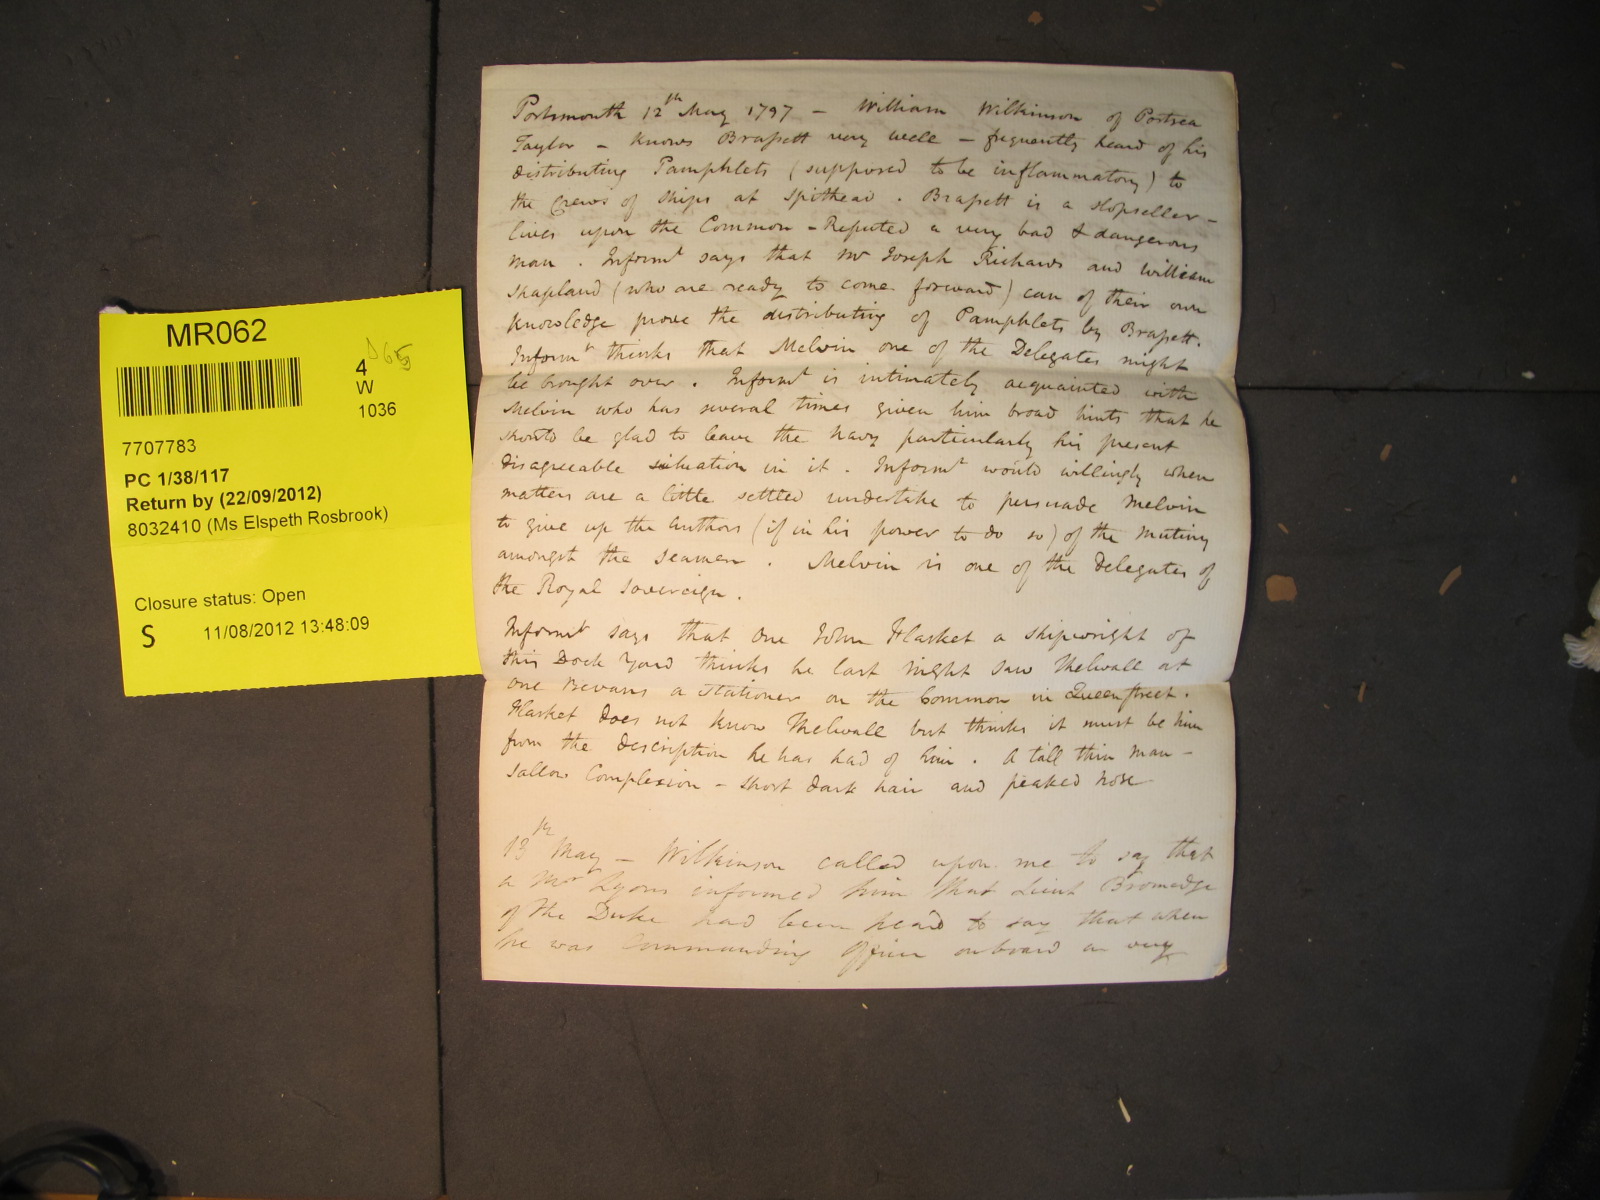 MR062
4
W
1036
7707783
PC 1/38/117
Return by (22/09/2012)
8032410 (Ms Elspeth Rosbrook)
Closure status: Open
S 11/08/2012 13:48:09
Portsmouth 12th May 1797 – William Wilkinson of Portsea
Taylor – knows Brassett very well – frequently heard of his
distributing Pamphlets (supposed to be inflammatory) to
the Crews of Ships at Spithead. Brassett is a slopseller –
lives upon the Common – Reputed a very bad & dangerous
man. Informt says that Mr Joseph Richards and William
Shapland (who are ready to come forward) can of their own
knowledge prove the distributing of Pamphlets by Brassett.
Informt thinks that Melvin one of the Delegates might
be brought over. Informt is intimately acquainted with
Melvin who has several times given him broad hints that he
should be glad to leave the Navy particularly his present
disagreeable situation in it. Informt would willingly when
matters are a little settled undertake to persuade Melvin
to give up the Authors (if in his power to do so) of the Mutiny
amongst the Seamen. Melvin is one of the Delegates of
the Royal Sovereign.
Informt says that one John Flasket a Shipwright of
this Dock Yard thinks he last Night saw Thelwall at
one Bevans a Stationer on the Common in Queen Street.
Flasket does not know Thelwall but thinks it must be him
from the description he has had of him. A tall thin man –
Sallow Complexion – short dark hair and peaked nose
13th May – Wilkinson called upon me to say that
a Mr Lyons informed him that Lieut Bromedge
of the Duke had been heard to say that when
he was Commanding Officer onboard in very